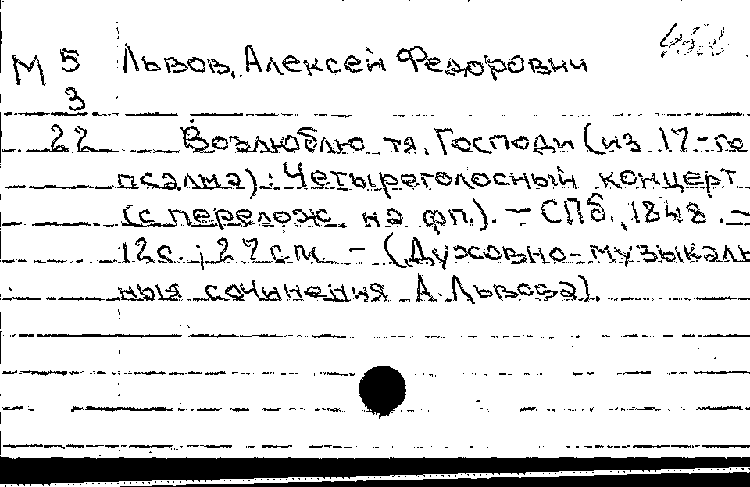 М 5 Львов, Алексей Федорович
3
22 Возлюблю тя, Господи (из 17-го
псалма): Четыреголосный концерт
(с перелож. на фп.). – СПб., 1848. –
12с.; 27см – (Духовно-музыкаль
ныя сочинения А. Львова).